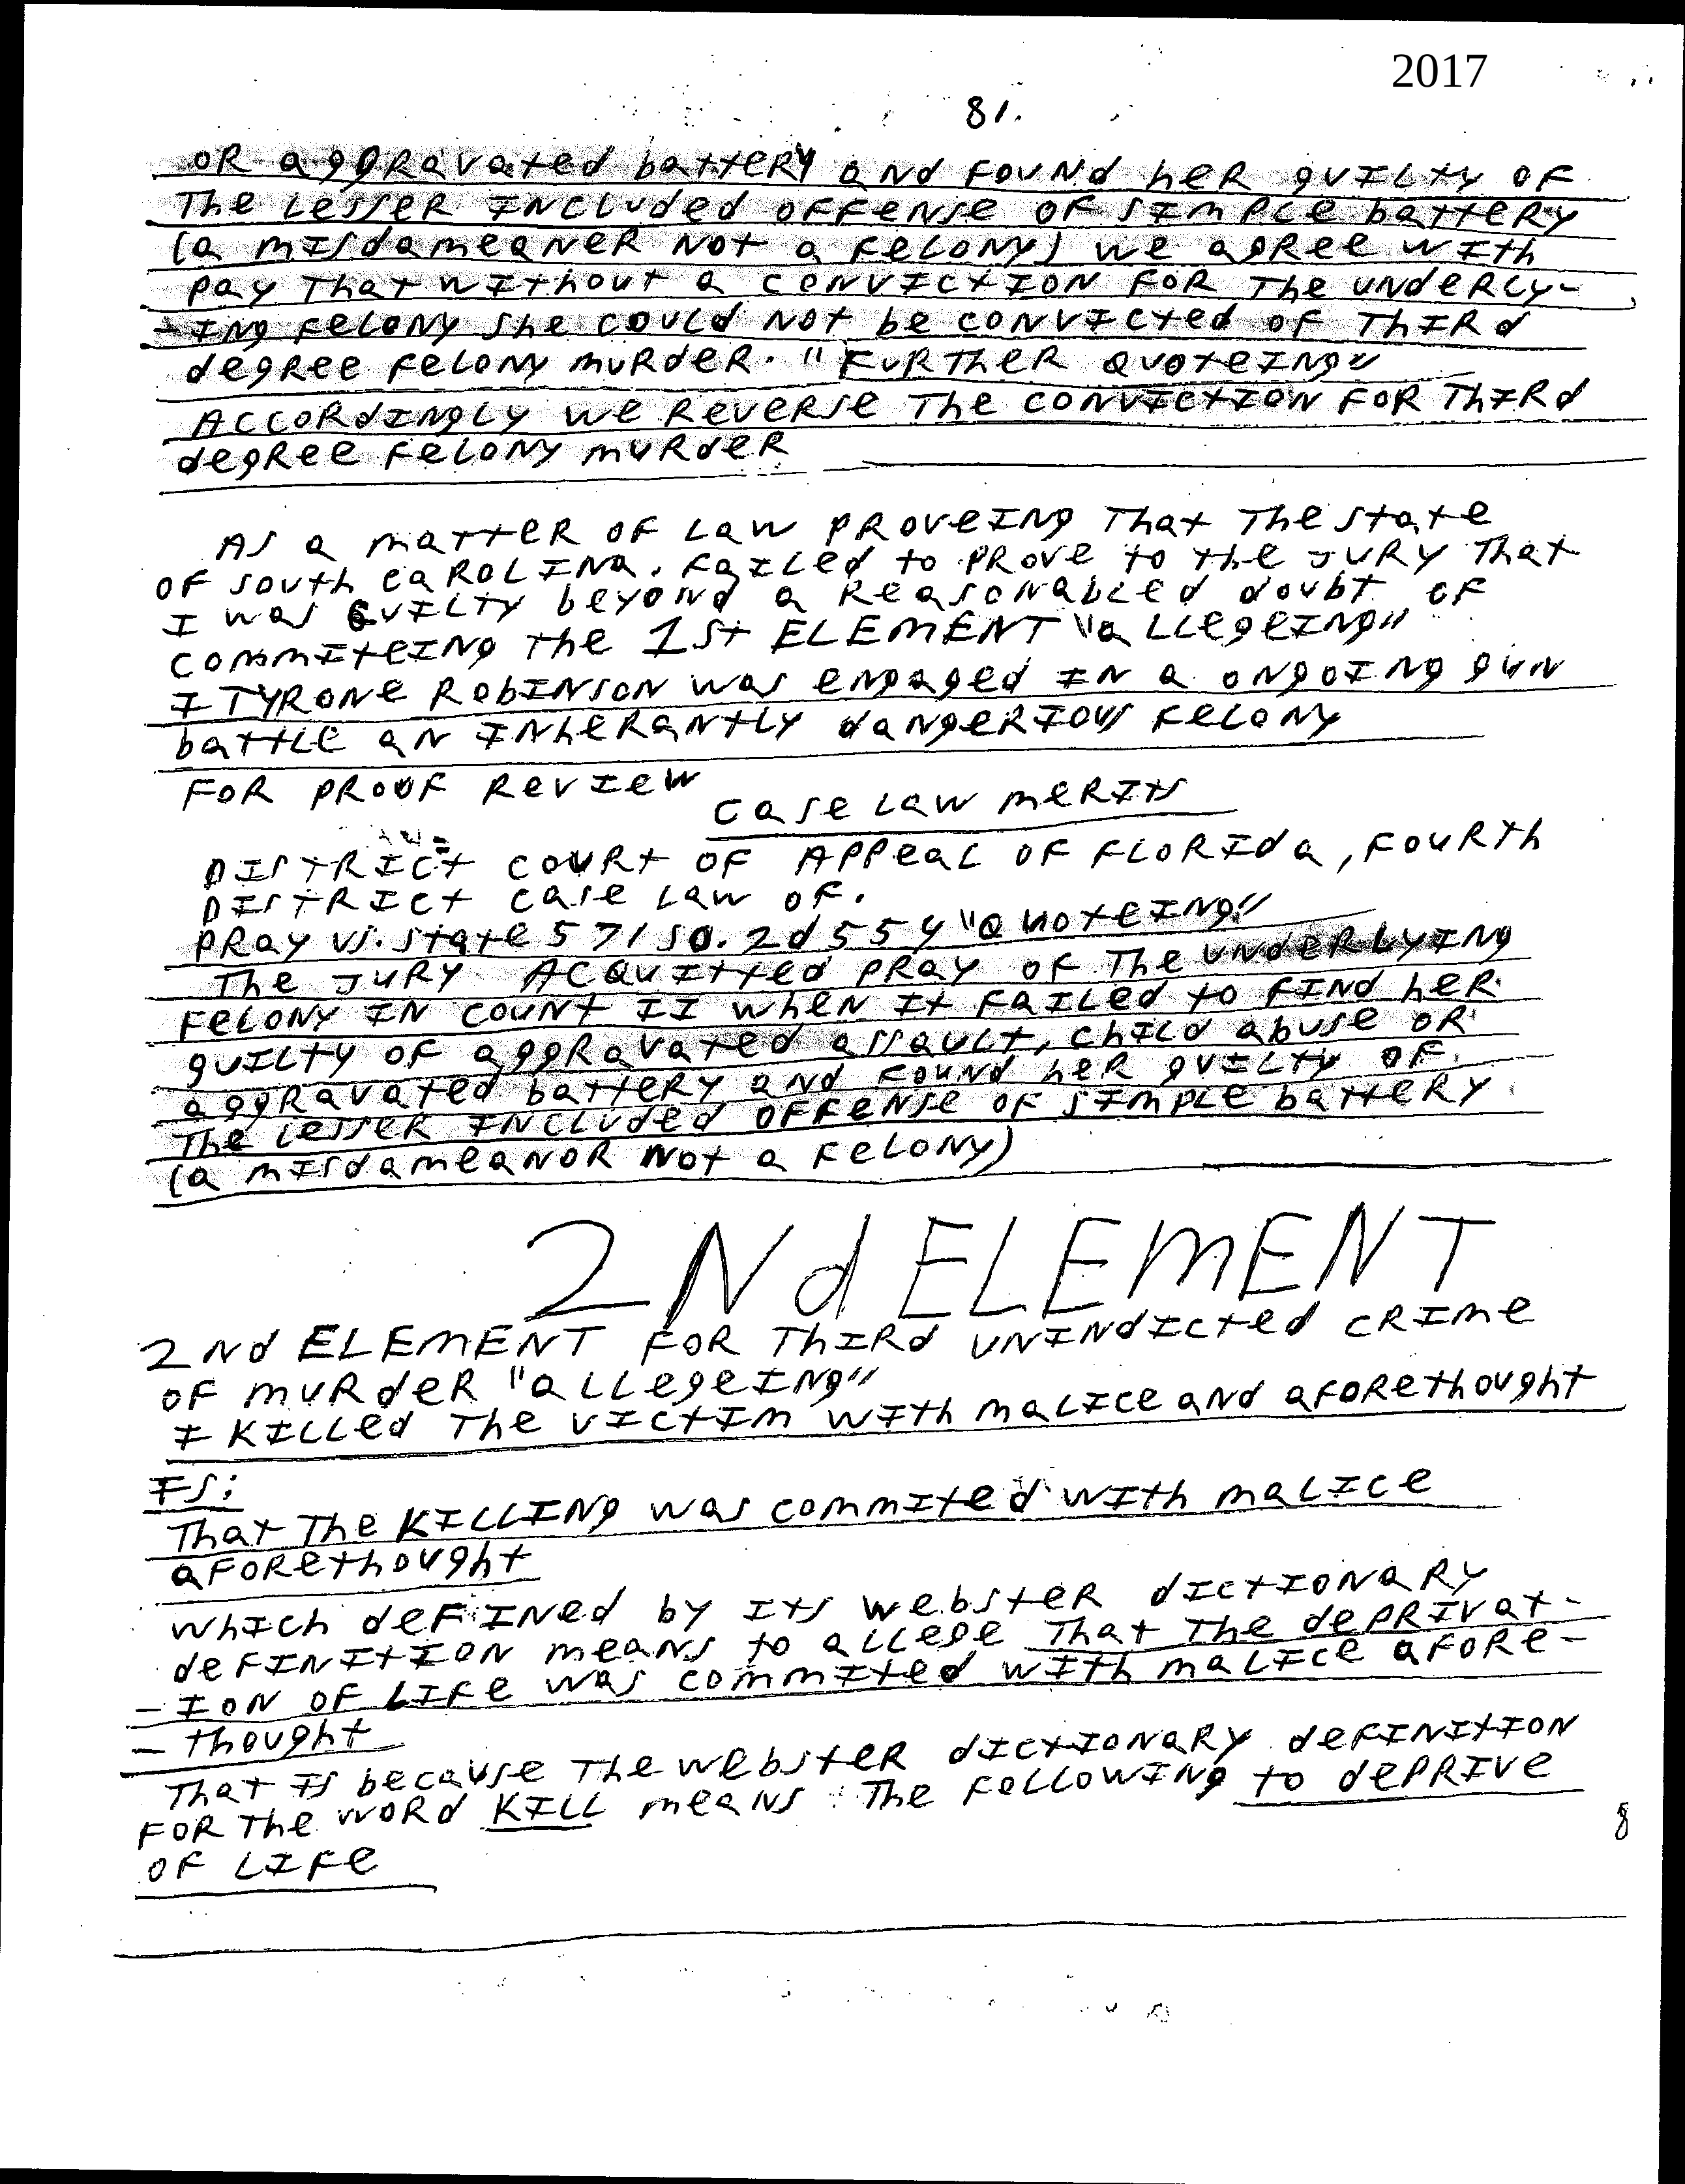 2017
81.
OR aggRavated batteRy aNd FOUNd heR gUILty OF
The LesseR INcLuded OFFeNse OF SImPLe batteRy
(a mIsdameaNeR Not a FeLONy) we agRee wIth
Pay That wIthout a coNvIctION FOR The UNdeRLy-
-INg FeLONy she couLd Not be coNvIcted OF ThIRd
degRee FeLONy muRdeR. "FuRTheR QuoteINg"
AccoRdINgLy we ReveRse The coNvIctION FOR ThIRd
degRee FeLONy muRdeR
As a matteR OF Law PROveINg That The state
OF south caROLINa. FaILed to PROve to the JuRy That
I was GuILTy beyoNd a ReasoNabLed doubt OF
commIteINg the 1St ELEmENT "aLLegeINg"
I TyRONe RobINsoN was eNgaged IN a oNgoINg guN
battLe aN INheRaNtLy daNgeRIous FeLONy
FOR PROOF RevIew
case Law meRIts
DIsTRIct couRt OF APPeaL OF FLORIda, FOuRth
DIsTRIct case Law OF.
PRay vs. state 571 So. 2d 554 "QuoteINg"
The JuRy AcquItted PRay OF The uNdeRLyINg
FeLONy IN couNt II wheN It FaILed to FINd heR
guILty OF aggRavated assauLt, chILd abuse OR
aggRavated batteRy aNd FouNd heR guILty OF
The LesseR INcLuded OFFeNse OF sImPLe batteRy
(a mIsdameaNOR Not a FeLONy)
2Nd ELEmENT
2Nd ELEmENT FOR ThIRd uNINdIcted cRIme
OF muRdeR "aLLegeINg"
I KILLed The vIctIm wIth maLIce aNd aFORethought
IS:
That The KILLINg was commIted wIth maLIce
aFORethought
whIch deFINed by Its webster dIctIONaRy
deFINItION meaNs to aLLege That The dePRIvat-
-ION OF LIFe was commIted wIth maLIce aFORe-
-thought
That Is because The webster dIctIONaRy deFINItION
FOR The woRd KILL meaNs : The FoLLowINg to dePRIve
8
OF LIFe